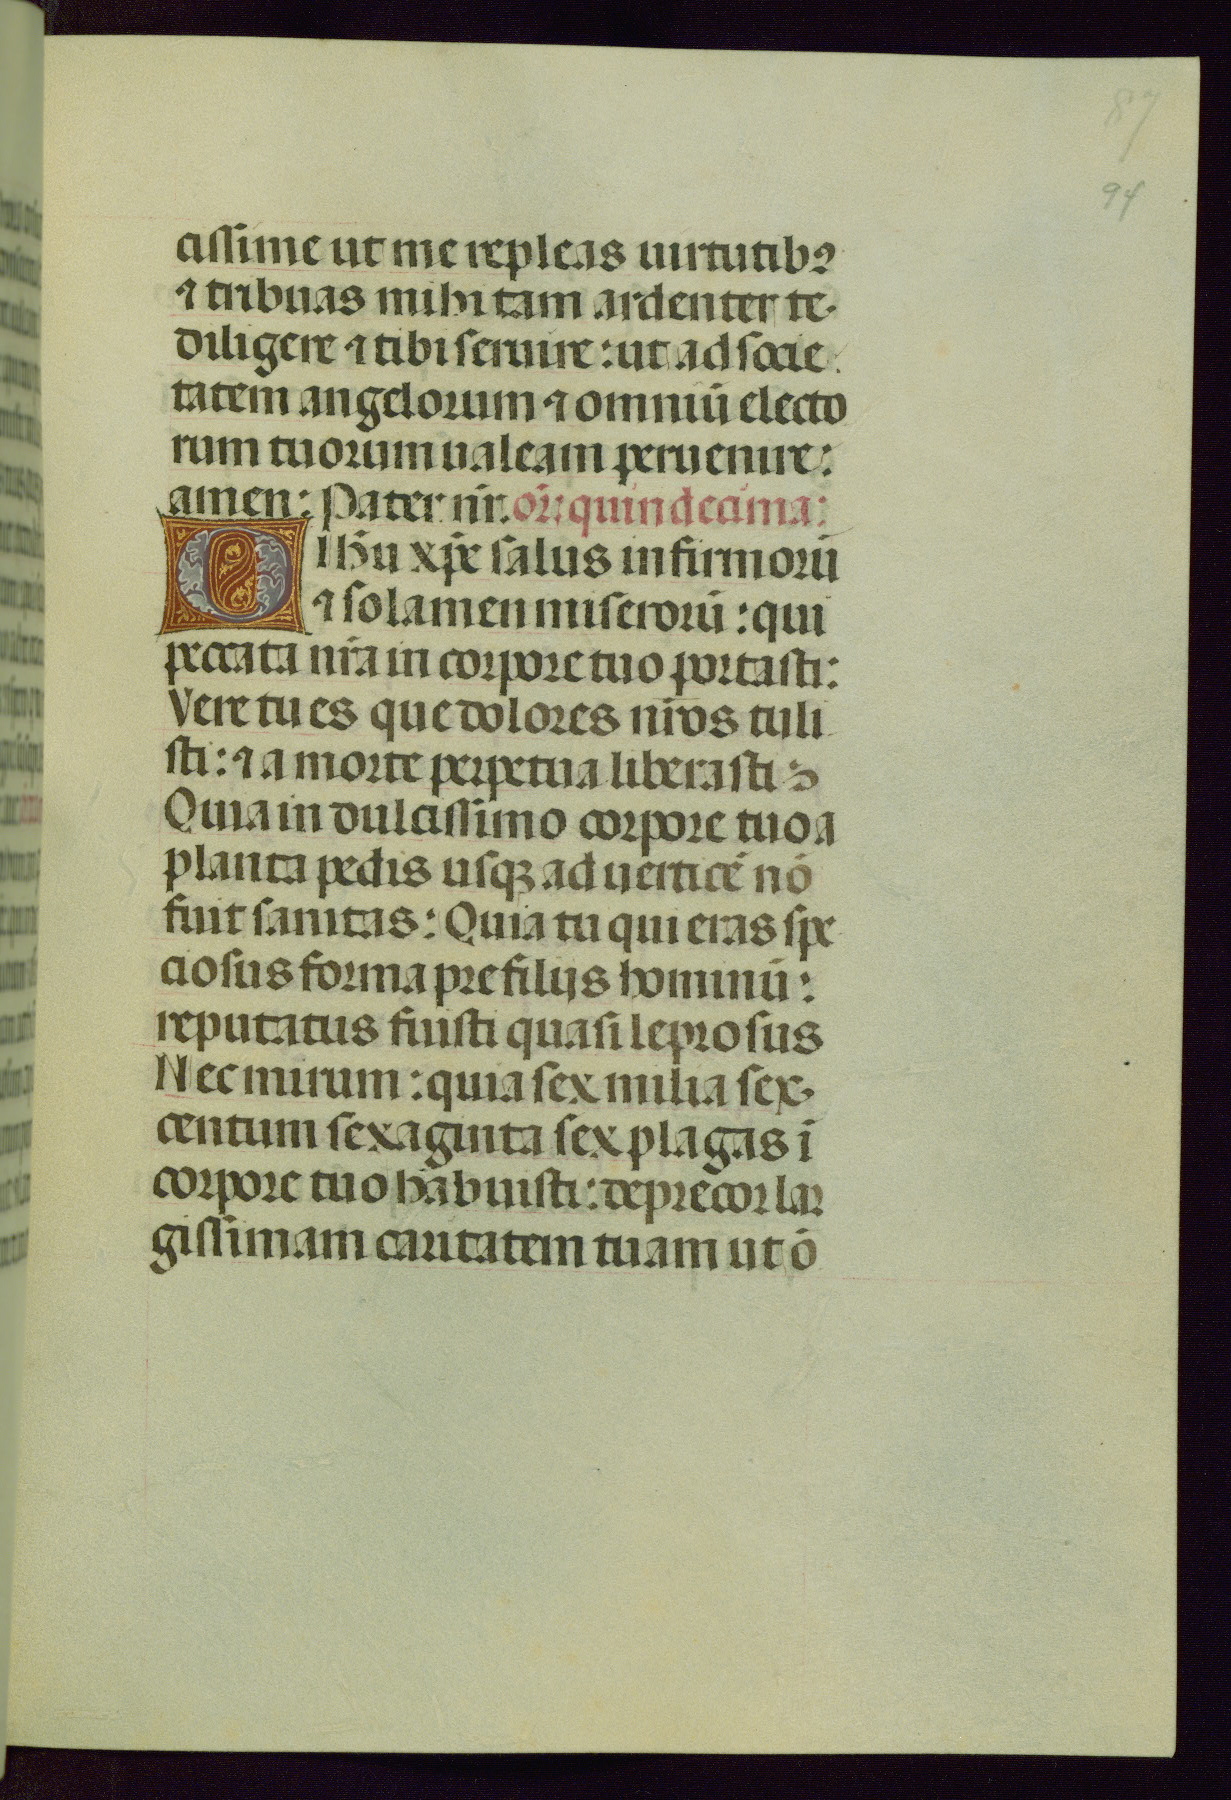 87
94
cissime ut me repleas uirtutibꝰ
⁊ tribuas mihi tam ardenter te
diligere ⁊ tibi seruire: ut ad socie
tatem angelorum ⁊ omniū electo
rum tuorum ualeam peruenire:
amen: Pater nr̄. or̄: quindecima:
O Ihū xp̄e salus infirmorū
⁊ solamen miserorū: qui
peccata nr̄a in corpore tuo portasti:
Vere tu es que dolores nr̄os tuli
sti: ⁊ a morte perpetua liberasti:
Quia in dulcissimo corpore tuo a
planta pedis usqꝫ ad uerticē nō
fuit sanitas: Quia tu qui eras spe
ciosus forma pre filijs hominū:
reputatus fuisti quasi leprosus
Nec mirum: quia sex milia sex
centum sexaginta sex plagas ī
corpore tuo habuisti: deprecor lar
gissimam caritatem tuam ut ō